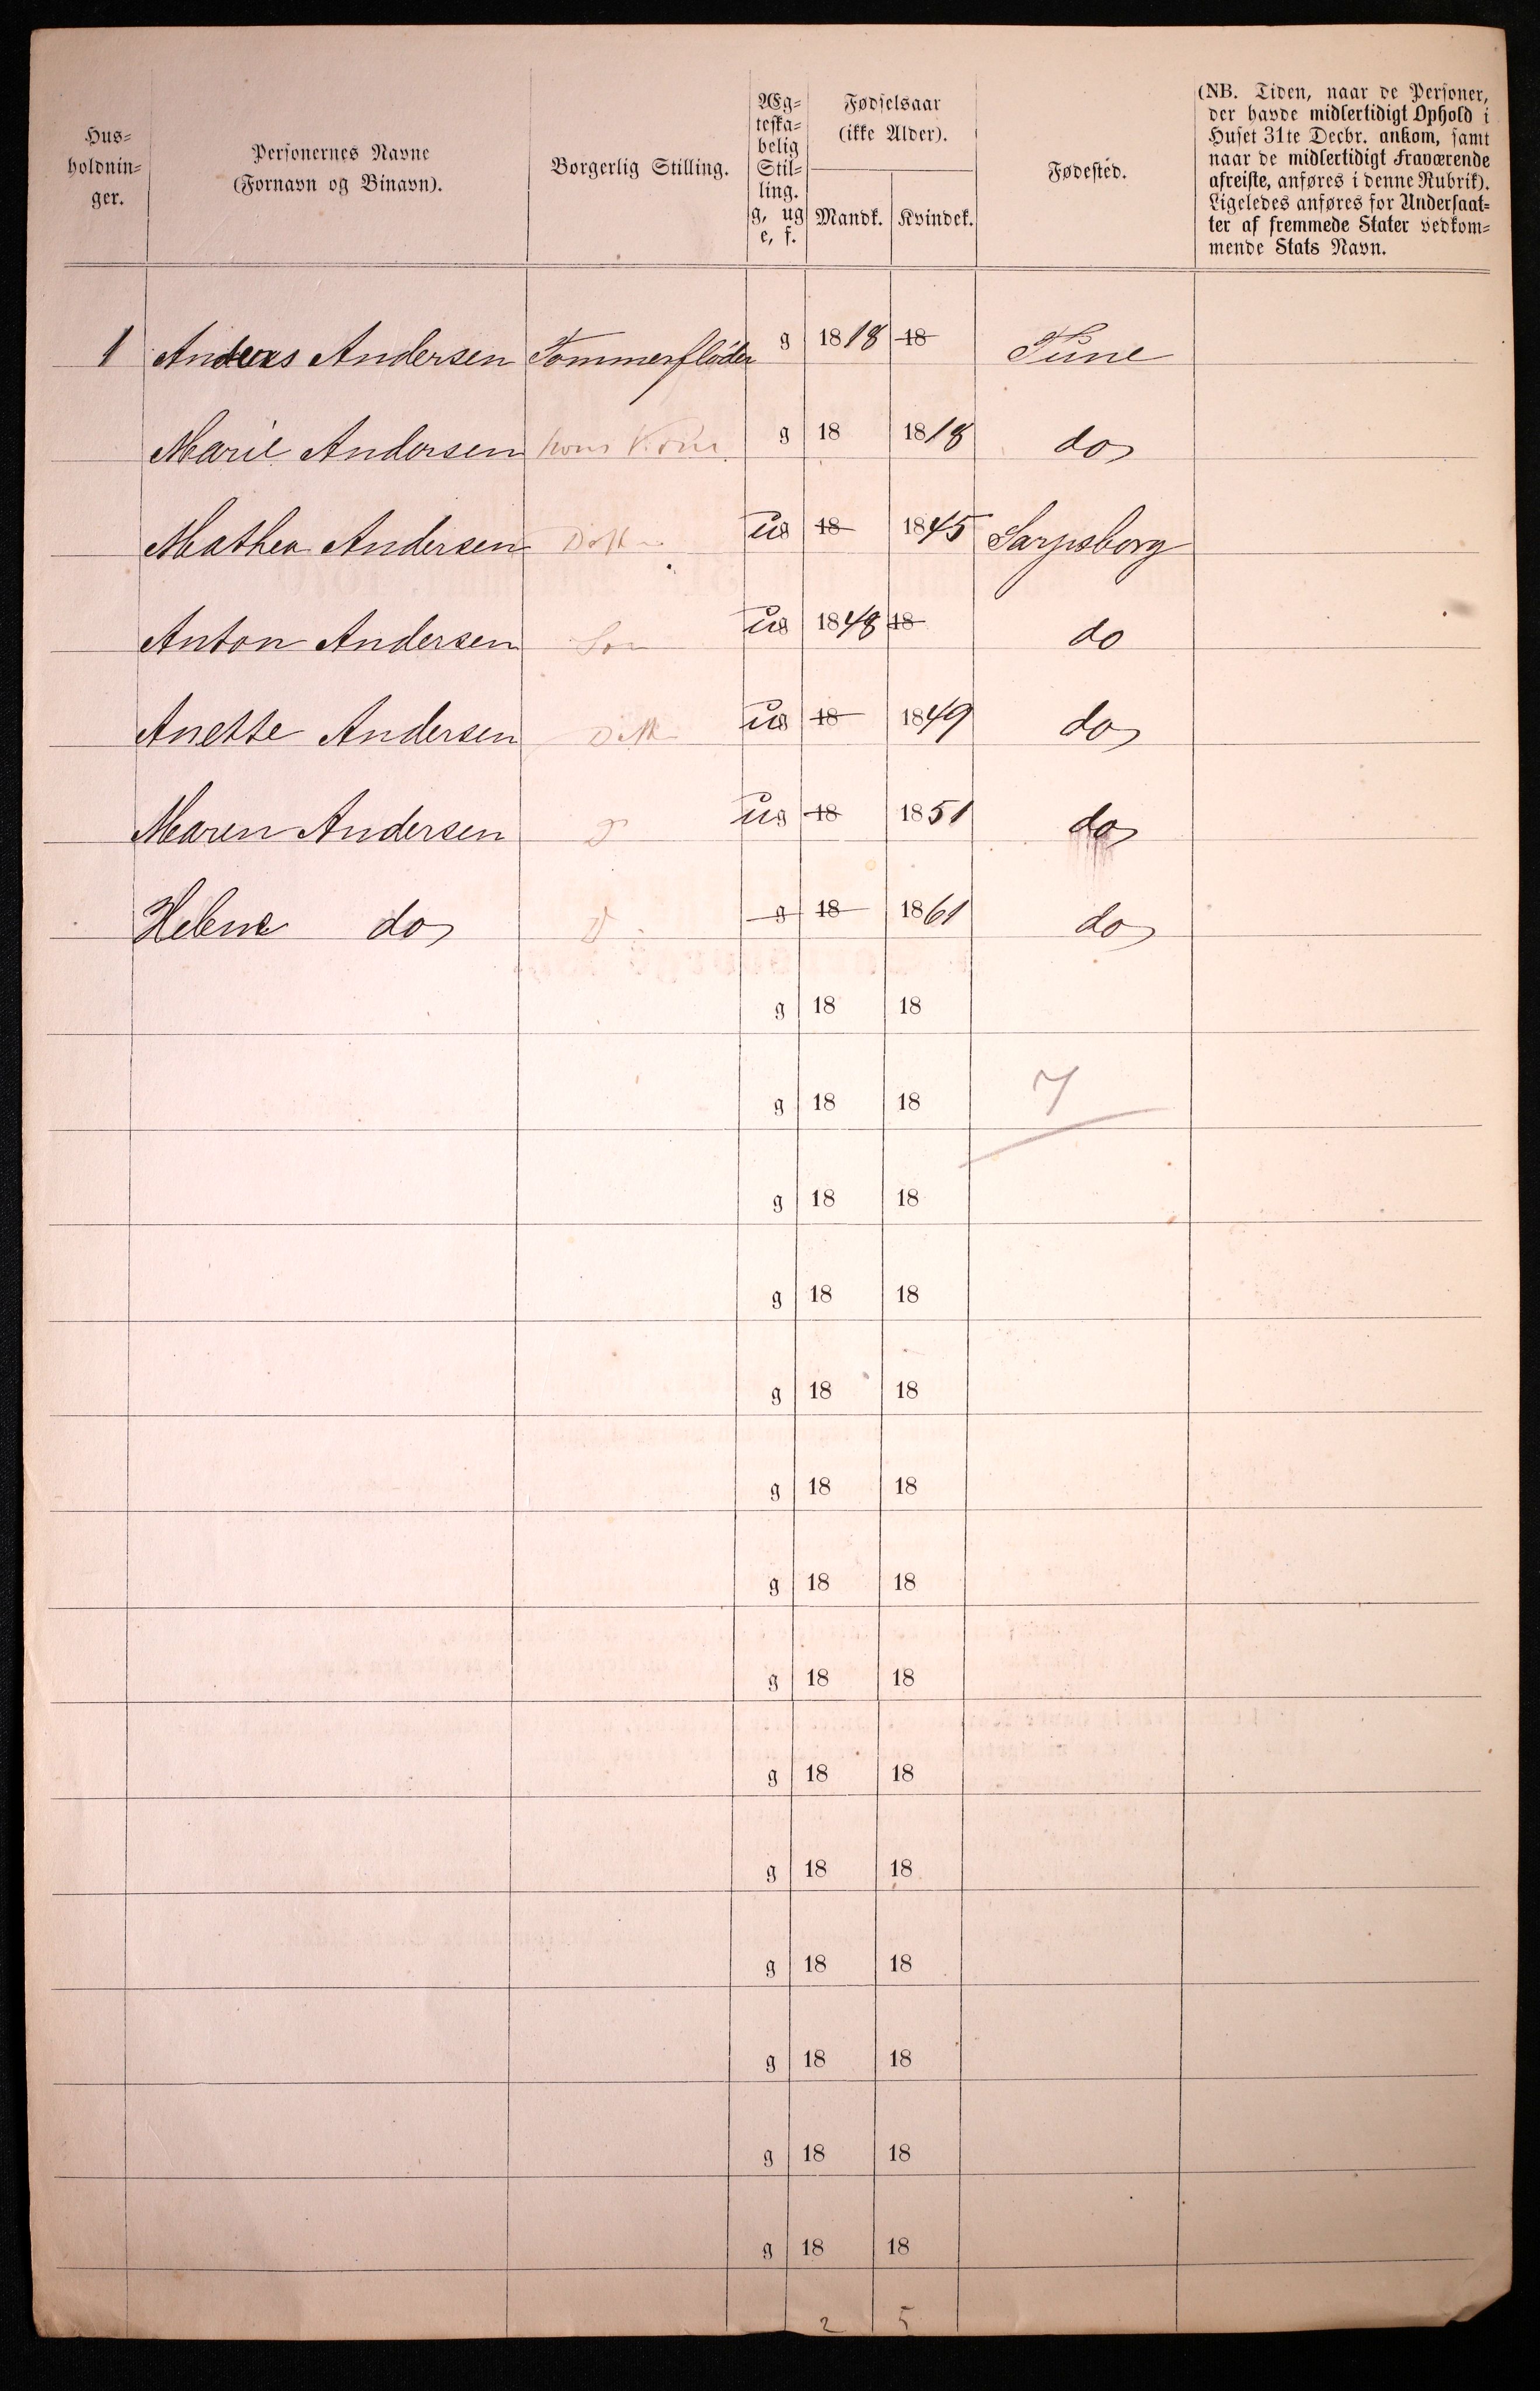 Hus-
holdnin-
ger.
Personernes Navne
(Fornavn og Binavn).
Borgerlig Stilling.
Æg-
teska-
belig
Stil-
ling.
g, ug
e, f.
Fødselsaar
(ikke Alder).
Mandk. Kvindek.
Fødested.
(NB. Tiden, naar de Personer,
der havde midlertidigt Ophold i
Huset 31te Decbr. ankom, samt
naar de midlertidigt Fraværende
afreiste, anføres i denne Rubrik).
Ligeledes anføres for Undersaat-
ter af fremmede Stater vedkom-
mende Stats Navn.
1 Andreas Andersen Tommerfløder g 1818 18 Tune
Marie Andersen hans Kone g 18 1818 do
Mathea Andersen Datter ug 18 1845 Sarpsborg
Anton Andersen Søn ug 1848 18 do
Anette Andersen Datt ug 18 1849 do
Maren Andersen D ug 18 1851 do
Helene do D g 18 1861 do
g 18 18
g 18 18 7
g 18 18
g 18 18
g 18 18
g 18 18
g 18 18
g 18 18
g 18 18
g 18 18
g 18 18
g 18 18
g 18 18
g 18 18
2 5